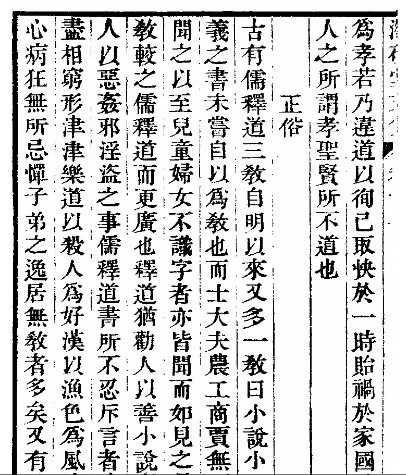 爲孝若乃違道以徇己取快於一時貽禍於家國
人之所謂孝聖賢所不道也
正俗
古有儒釋道三教自明以來又多一教曰小說小
義之書未嘗自以爲教也而士大夫農工商賈無
聞之以至兒童婦女不識字者亦皆聞而如見之
教較之儒釋道而更廣也釋道猶勸人以善小說
人以惡姦邪淫盜之事儒釋道書所不忍斥言者
盡相窮形津津樂道以殺人爲好漢以漁色爲風
心病狂無所忌憚子弟之逸居無教者多矣又有